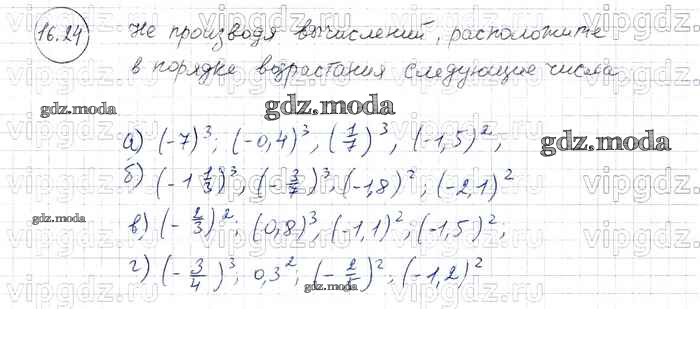 16.24 Не производя вычислений, расположите
в порядке возрастания следующие числа
gdz.moda
gdz.moda
а) (-7)³; (-0,4)³, (1/7)³, (-1,5)²,
gdz.moda
б) (-1 1/3)³; (-3/7)³; (-1,8)²; (-2,1)²
gdz.moda
в) (-2/3)²; (0,8)³, (-1,1)²; (-1,5)²,
г) (-3/4)³; 0,3²; (-2/5)²; (-1,2)²
gdz.moda
vipgdz.com